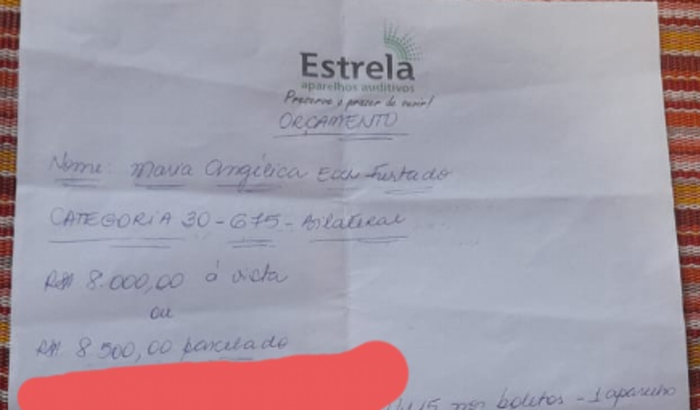 Estrela
aparelhos auditivos
Preserve o prazer de ouvir!
ORÇAMENTO
Nome: Maria Angélica Furtado
CATEGORIA 30-675-Bilateral
R$ 8.000,00 á vista
ou
R$ 8.500,00 parcelado
15 nos boletos - 1 aparelho